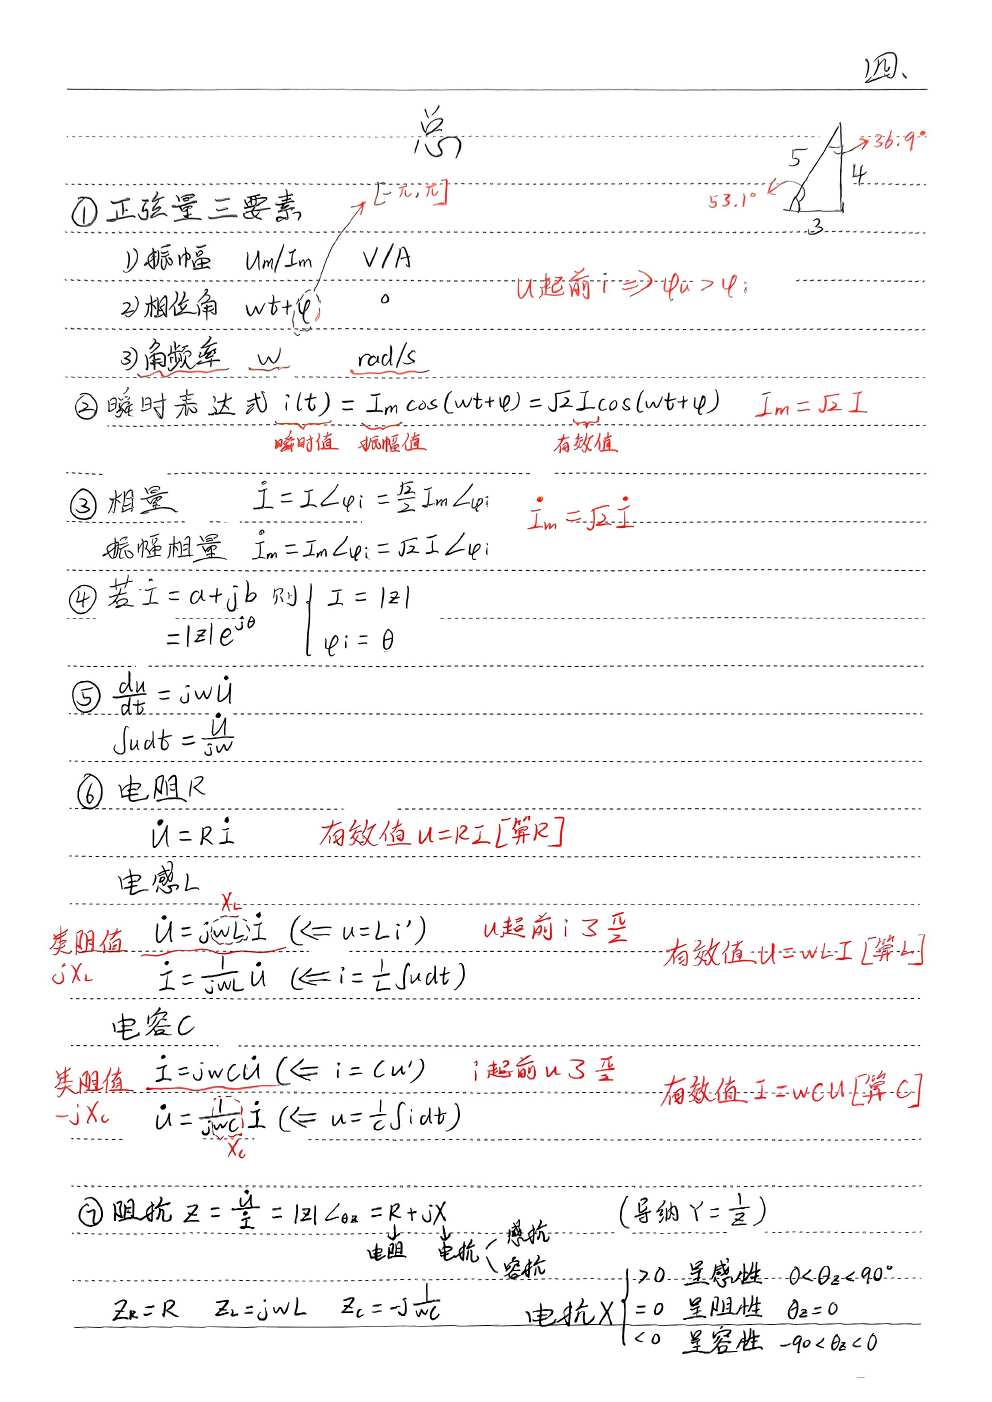 四、
总
5 4 3 36.9° 53.1°
① 正弦量三要素 [-π,π]
1) 振幅 Um/Im V/A
2) 相位角 wt+φi °
u超前i ⇒ φu>φi
3) 角频率 w rad/s
② 瞬时表达式 i(t) = Im cos(wt+φ) = √2 I cos(wt+φ) Im = √2 I
瞬时值 振幅值 有效值
③ 相量 İ = I∠φi = √2/2 Im∠φi İm = √2 İ
振幅相量 İm = Im∠φi = √2 I∠φi
④ 若 İ = a+jb 则 { I = |z|
= |z|e^jθ φi = θ
⑤ du/dt = jwU̇
∫udt = U̇/jw
⑥ 电阻R
U̇ = Rİ 有效值 U=RI [算R]
电感L
XL
类阻值 jXL
U̇ = jwLİ (⇐ u=Li') u超前i了π/2
有效值 U=wLI [算L]
İ = 1/jwL U̇ (⇐ i=1/L∫udt)
电容C
类阻值 -jXc
İ=jwCU̇ (⇐ i=Cu') i超前u了π/2
有效值 I=wCU [算C]
U̇ = 1/jwC İ (⇐ u=1/C∫idt)
Xc
⑦ 阻抗 Z = U̇/İ = |Z|∠θz = R+jX (导纳 Y=1/Z)
电阻 电抗 < 感抗 容抗
ZR=R ZL=jwL Zc=-j1/wC
电抗X { >0 呈感性 0<θz<90°
=0 呈阻性 θz=0
<0 呈容性 -90<θz<0